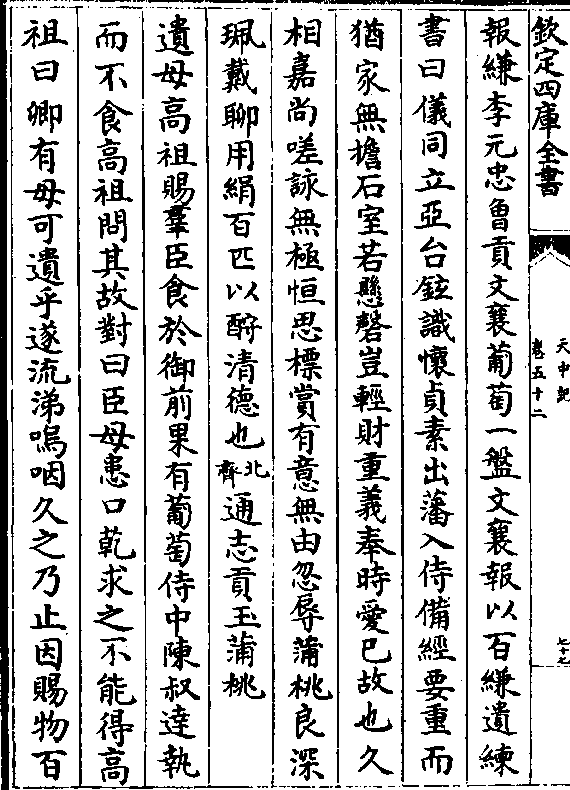 欽定四庫全書
天中記
卷五十二
七十九
報縑李元忠魯貢文襄葡萄一盤文襄報以百縑遺練
書曰儀同立亞台鉉識懷貞素出藩入侍備經要重而
猶家無擔石室若懸磬豈輕財重義奉時愛已故也久
相嘉尚嗟詠無極恒思標賞有意無由忽辱蒲桃良深
珮戴聊用絹百匹以酧清德也北齊通志貢玉蒲桃
遺母高祖賜羣臣食於御前果有葡萄侍中陳叔達執
而不食高祖問其故對曰臣母患口乾求之不能得高
祖曰卿有母可遺乎遂流涕嗚咽久之乃止因賜物百